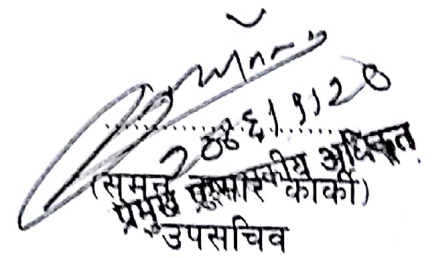 २०७६।१।२०
(सुमन कुमार कार्की)
प्रमुख प्रशासकीय अधिकृत
उपसचिव